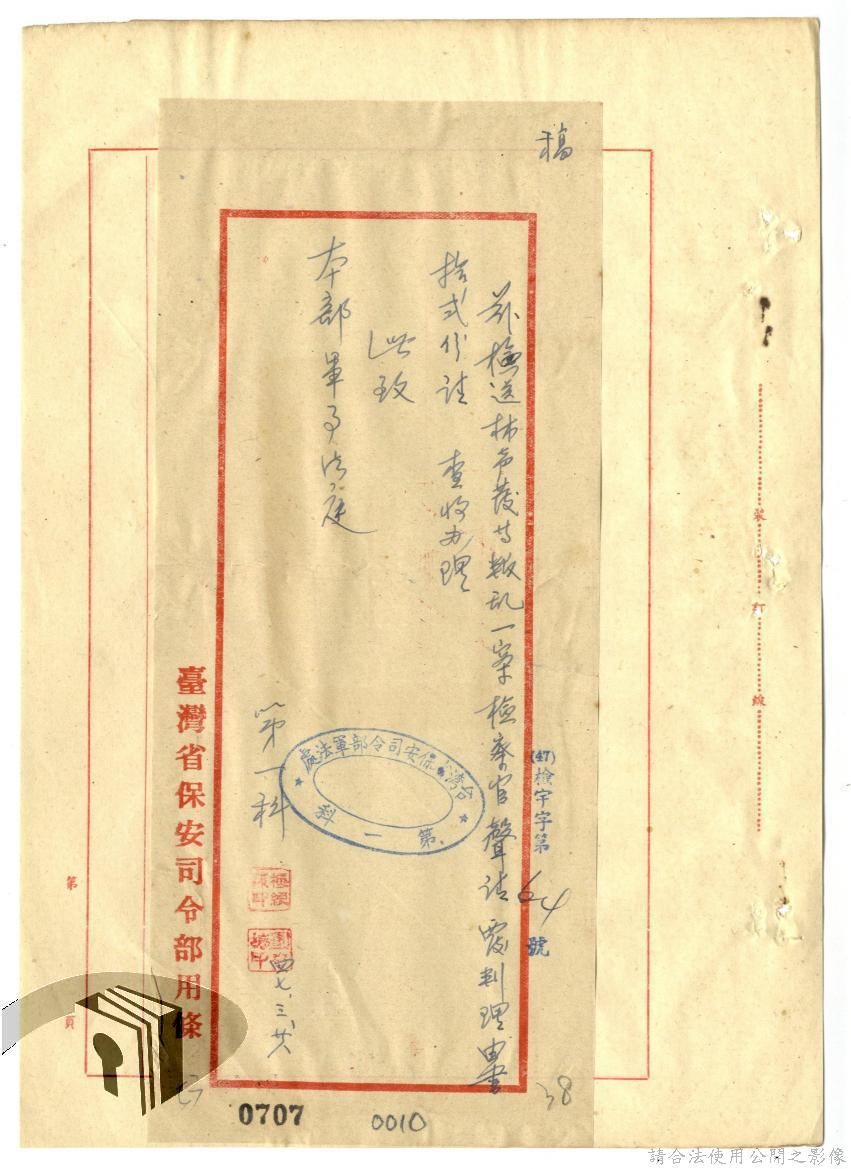 稿
茲檢送林希茂等叛乱一案檢察官聲請覆判理由書
拾弍份請 查收办理
此致
本部軍事法庭
第一科
四七、三、廿
(47)檢宇字第64號
台灣省保安司令部軍法處
第一科
臺灣省保安司令部用條
第 頁
裝訂線
0707
0010
38
請合法使用公開之影像